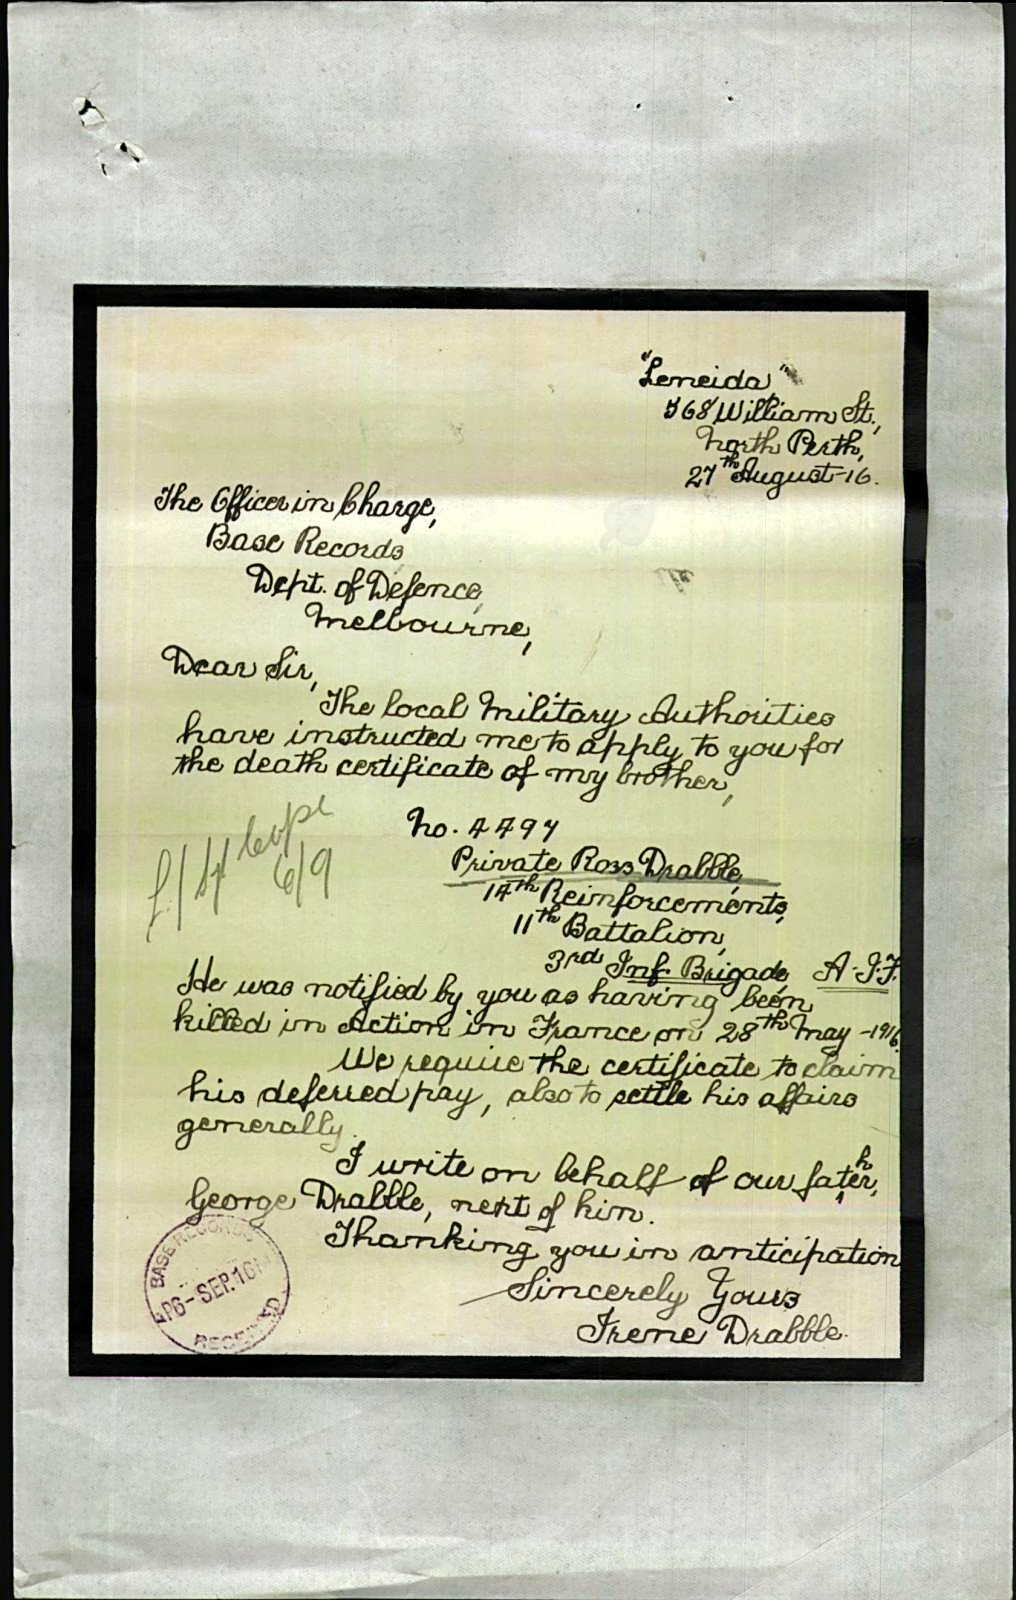 "Leneida"
568 William St.,
North Perth,
27th August-16.
The Officer in Charge,
Base Records
Dept. of Defence,
Melbourne,
Dear Sir,
The local Military Authorities
have instructed me to apply to you for
the death certificate of my brother,
No. 4497
Private Ross Drabble,
14th Reinforcements,
11th Battalion,
3rd Inf. Brigade, A.I.F.
6/9
He was notified by you as having been
killed in Action in France on 28th May -1916.
We require the certificate to claim
his deferred pay, also to settle his affairs
generally.
I write on behalf of our father,
George Drabble, next of kin.
Thanking you in anticipation
Sincerely Yours
Irene Drabble.
BASE RECORDS
6-SEP.16
RECEIVED